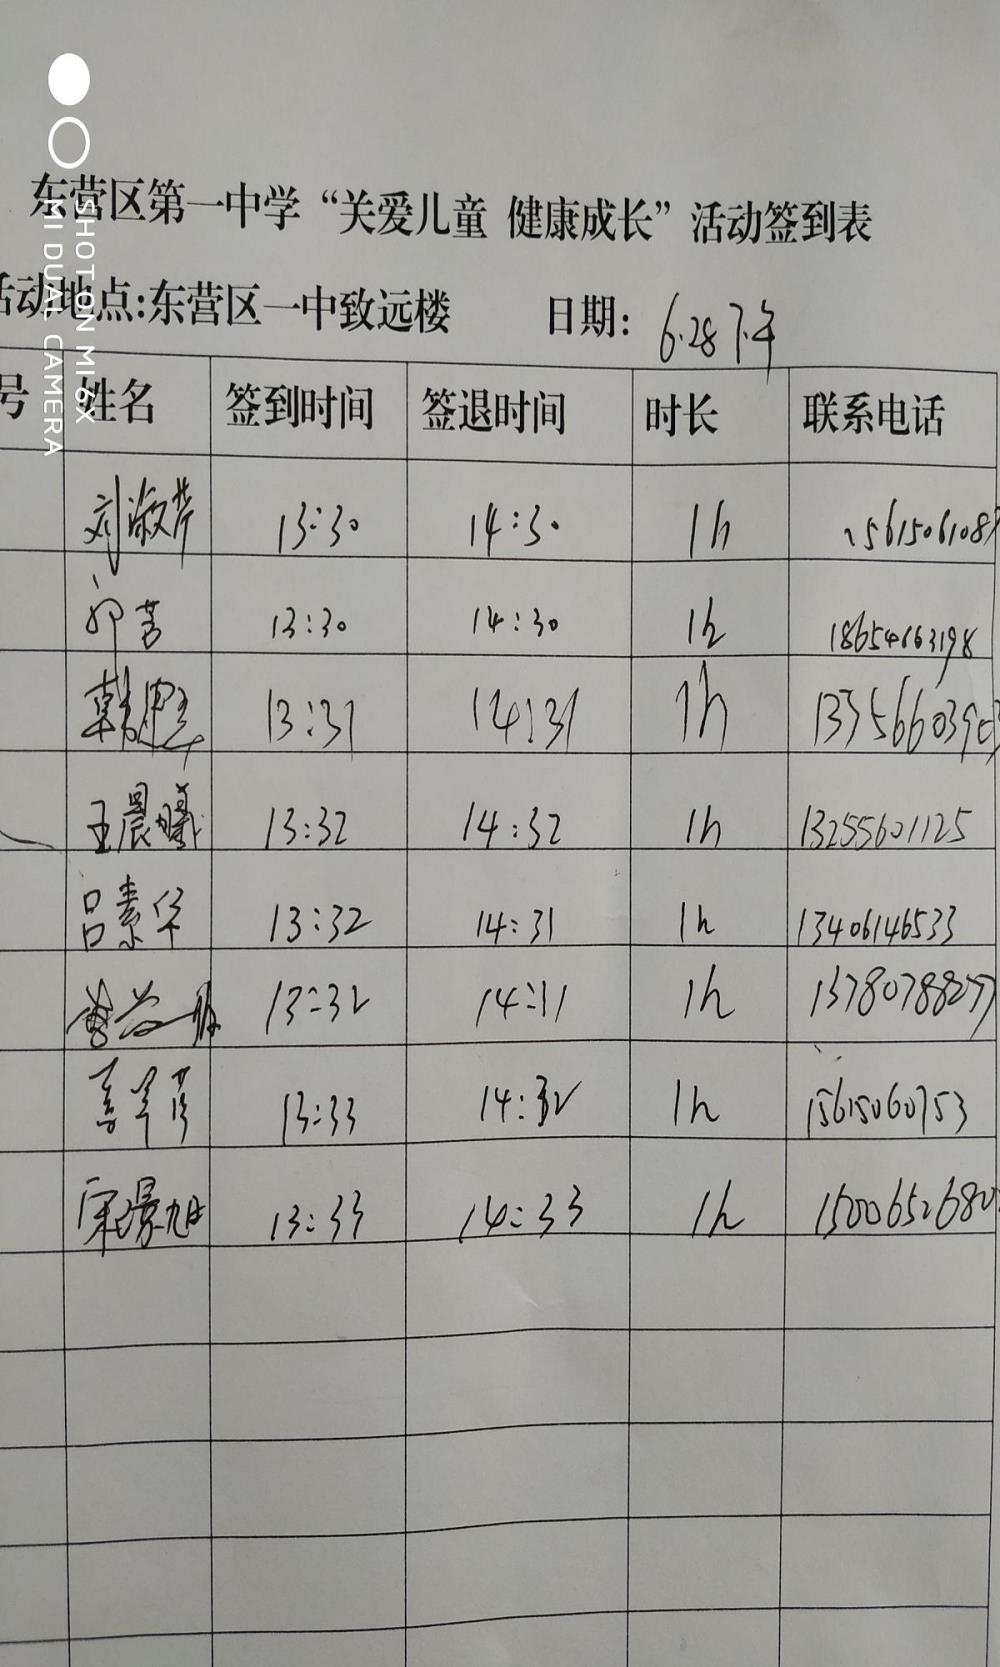 东营区第一中学“关爱儿童 健康成长”活动签到表
活动地点:东营区一中致远楼 日期: 6.28下午
号 姓名 签到时间 签退时间 时长 联系电话
刘淑芹 13:30 14:30 1h 1561506108
13:30 14:30 1h 18654663198
韩 13:31 14:31 1h
王晨曦 13:32 14:32 1h 13255601125
吕素华 13:32 14:31 1h 13406146533
13:32 14:31 1h 13780788277
13:33 14:32 1h 15615060753
宋璟旭 13:33 14:33 1h 1500652680
SHOT ON MI 6X
MI DUAL CAMERA